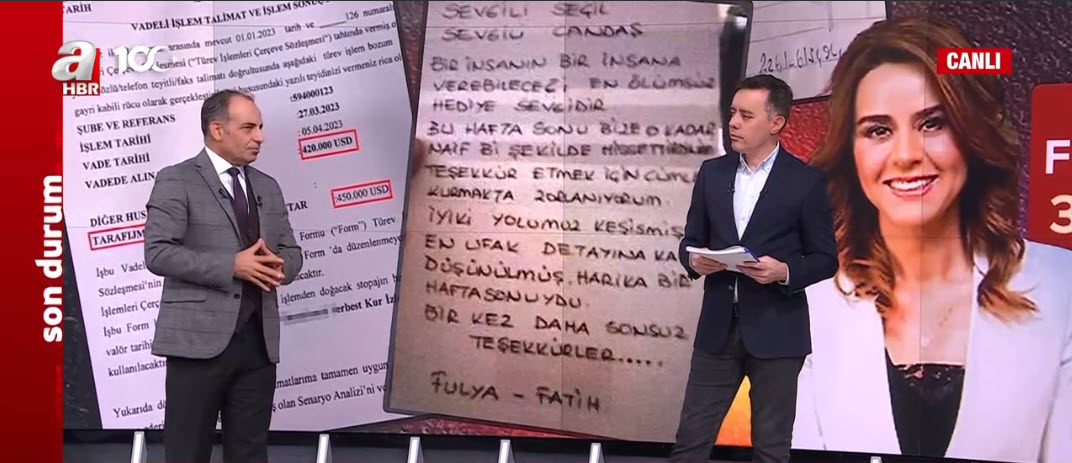 TARİH
VADELİ İŞLEM TALİMAT VE İŞLEM SONUÇ
arasında mevcut 01.01.2023 tarih ve 126 numaralı
Çerçeve Sözleşmesi ("Türev İşlemleri Çerçeve Sözleşmesi") tahtında vermiş
sözlü/telefon teyitli/faks talimatı doğrultusunda aşağıdaki türev işlem bozum
gayri kabili rücu olarak gerçekleş hususundaki yazılı teyidinizi vermeniz rica
ŞUBE VE REFERANS :594000123
İŞLEM TARİHİ :27.03.2023
VADE TARİHİ :05.04.2023
VADEDE ALIN :420.000 USD
TAR :450.000 USD
DİĞER HUS
TARAFIJM
Formu ("Form") Türev
İşbu Vadel Form 'da düzenlenmeye
Sözleşmesi'nin
İşlemleri Çerçeve işlemden doğacak stopajın
İşbu Form erbest Kur
valör tarihi
kullanılacaktır
atlarıma tamamen uygun
Yukarıda olan Senaryo Analizi'ni
SEVGİLİ SEÇİL
SEVGİLİ CANDAŞ
BİR İNSANIN BİR İNSANA
VEREBİLECEĞİ EN ÖLÜMSÜZ
HEDİYE SEVGİDİR
BU HAFTA SONU BİZE O KADAR
NAİF Bİ ŞEKİLDE HİSSETTİRDİNİZ
TEŞEKKÜR ETMEK İÇİN CÜMLE
KURMAKTA ZORLANIYORUM.
İYİKİ YOLUMUZ KEŞİSMİŞ
EN UFAK DETAYINA KA
DÜŞÜNÜLMÜŞ, HARİKA BİR
HAFTASONUYDU.
BİR KEZ DAHA SONSUZ
TEŞEKKÜRLER.....
FULYA - FATİH
CANLI
F
3
a 100
HBR
son durum